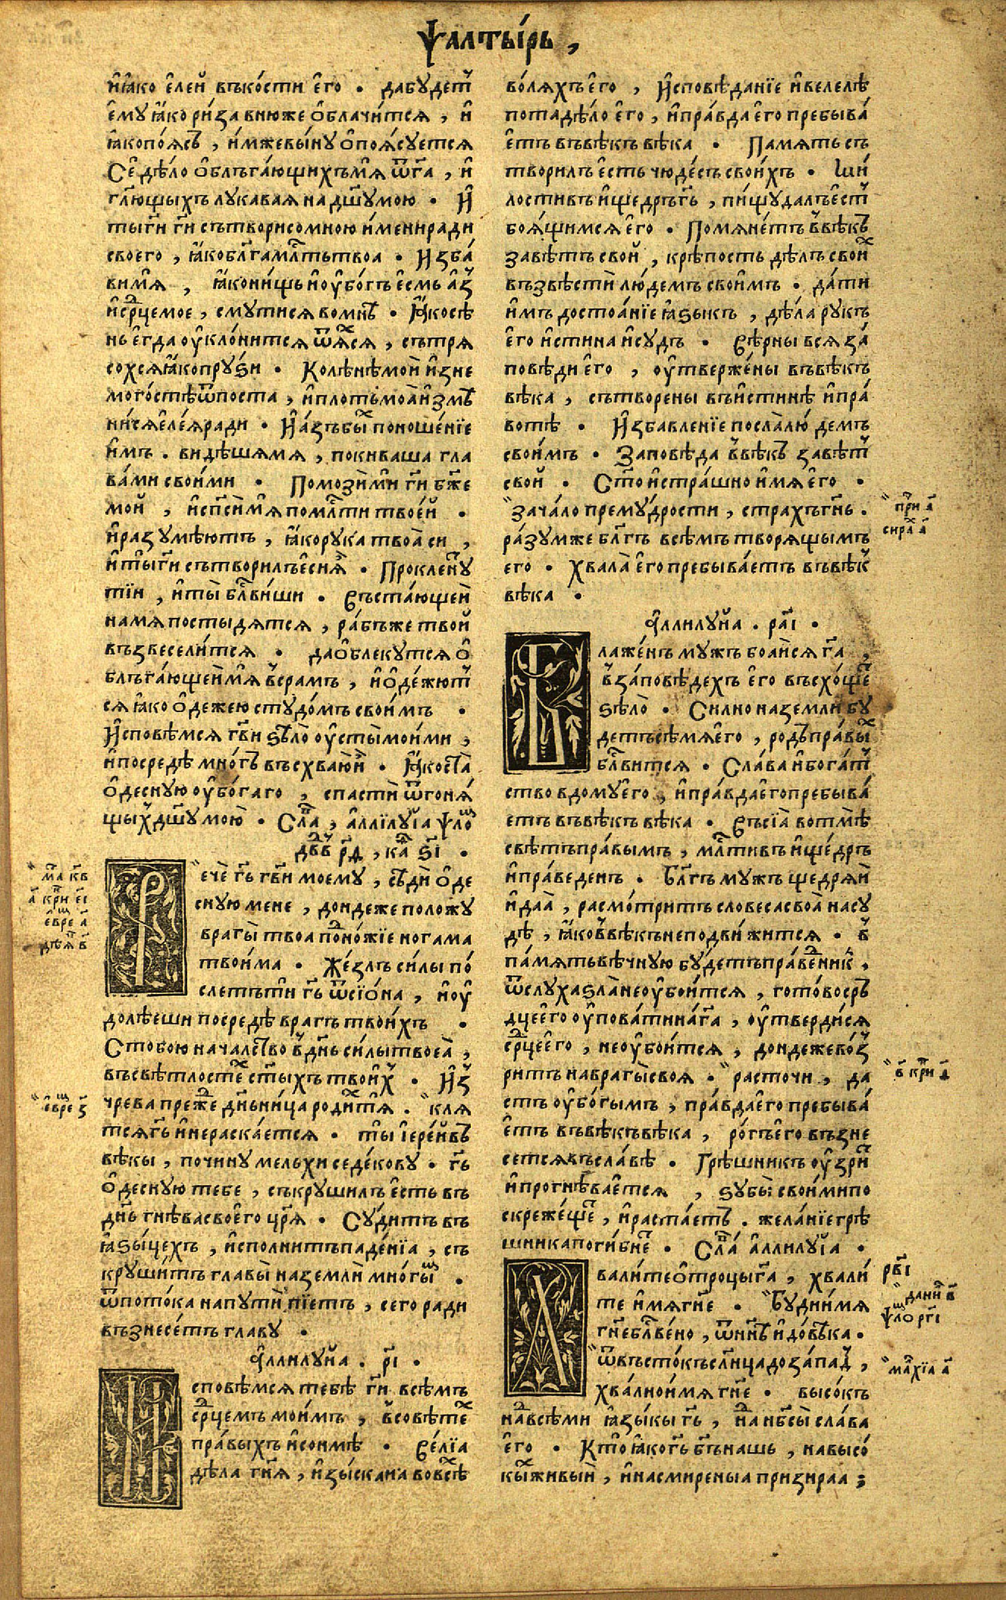 Ѱалты́рь,
и҆ ꙗ҆ко е҆лей въ ко́сти е҆го . да бу́дет
е҆му ꙗ҆ко ри́за в ню́же о҆блачи́тсѧ , и҆
ꙗ҆ко по́ѧсъ , и҆мже вы́ну о҆поѧ́суетсѧ
Се дѣ́ло о҆блъга́ющихъ мѧ ѿ га҃ , и҆
гл҃ющыхъ лука́ваѧ на дш҃у мою . И҆
ты ги҃ ги҃ сътвори со мно́ю и҆мени ра́ди
своего , ꙗ҆ко бл҃га мл҃ть твоа . И҆зба́
ви мѧ , ꙗ҆ко ни́щь и҆ оу҆бо́гъ е҆смь а҆з
и҆ ср҃це мое , смути́сѧ во мнѣ . Ꙗ҆ко сѣ
нь е҆гда оу҆клони́тсѧ ѿѧ́хсѧ , сътрѧ
со́хсѧ ꙗ҆ко пру́ѕи . Колѣ́нѣ мои и҆зне
мого́стѣ ѿ поста , и҆ пло́ть моа и҆змѣ
ни́сѧ е҆леа ра́ди . И҆ а҆зъ бы́х поноше́нїе
и҆мъ . ви́дѣша мѧ , покива́ша гла
ва́ми свои́ми . Помози́ ми ги҃ бж҃е
мой , и҆ сп҃си́ мѧ по мл҃ти твое́й .
и҆ разумѣ́ютъ , ꙗ҆ко рука твоа си ,
и҆ ты ги҃ сътвори́лъ е҆си ѧ . Проклену́
тїи , и҆ ты бл҃ви́ши . Въста́ющей
на мѧ постыдѧ́тсѧ , ра́бъ же твой
възвесели́тсѧ . да о҆блеку́тсѧ о҆
блъга́ющей мѧ въ сра́мъ , и҆ о҆де́жютъ
сѧ ꙗ҆ко о҆де́жею студо́мъ свои́мъ .
И҆сповѣ́мсѧ гв҃и ѕѣло оу҆сты мои́ми ,
и҆ посредѣ мно́гъ въсхвалю́ и . Ꙗ҆ко ста
о҆десну́ю оу҆бо́гаго , спасти ѿ гонѧ́
щых дш҃у мою . Сла́ , а҆ллилу́їа ѱло́м
дв҃дв рд҃ , ка ѕ҃і .
ече́ гь҃ гв҃и моему́ , сѣди́ о҆де
сну́ю мене , до́ндеже положу
враги твоа подно́жїе нога́ма
твои́ма . Же́злъ си́лы по́
слетъ ти гь҃ ѿ сїо́на , и҆ оу҆
долѣ́еши посредѣ вра́гъ твои́хъ .
С тобо́ю нача́лство в де́нь си́лы твоеа ,
въ свѣ́тлостех ст҃ыхъ твои́х . И҆з
чре́ва пре́же дн҃ьни́ца роди́х тѧ . клѧ
тсѧ гь҃ и҆ не раска́етсѧ . ты́ і҆ере́й въ
вѣ́кы , по чи́ну мельхиседе́кову . гь҃
о҆десну́ю тебе , съкруши́лъ е҆сть въ
дн҃ь гнѣ́ва своего́ цр҃ѧ . Су́дитъ въ
ꙗ҆зы́цехъ , и҆спо́лнитъ паде́нїа , съ
круши́тъ главы на земли мно́гых .
ѿ пото́ка на пути пїетъ , сего ра́ди
възнесе́тъ главу .
А҆ллилу́иа . р҃і .
споведе́мсѧ тебѣ ги҃ всѣ́мъ
ср҃цемъ мои́мъ , в совѣ́те
пра́выхъ и҆ со́нмѣ . Ве́лїа
дѣла гн҃ѧ , и҆зы́скана во всѣ
во́лѧхъ е҆го , И҆сповѣ́данїе и҆ велелѣ
пота дѣ́ло е҆го , и҆ пра́вда е҆го пребыва́
е҆тъ въ вѣ́къ вѣ́ка . Па́мѧть съ
твори́лъ е҆сть чюде́съ свои́хъ . Ми́
лостивъ и҆ ще́дръ гь҃ , пи́щу да́лъ е҆ст
боѧ́щимсѧ е҆го . Помѧне́тъ в вѣ́къ
завѣ́тъ свой , крѣ́пость дѣ́лъ свои́х
възвѣсти лю́демъ свои́мъ . да́ти
и҆мъ достоа́нїе ꙗ҆зы́къ , дѣла ру́къ
е҆го и҆стина и҆ су́дъ . Вѣ́рны всѧ за́
повѣди е҆го , оу҆тверже́ны въ вѣ́къ
вѣ́ка , сътво́рены въ и҆стинѣ и҆ пра́
вотѣ . И҆збавле́нїе посла лю́демъ
свои́мъ . Заповѣда в вѣ́къ завѣ́т
свой . Ст҃о и҆ стра́шно и҆мѧ е҆го .
зача́ло прему́дрости , стра́хъ гн҃ь .
ра́зум же бл҃гъ всѣ́мъ творѧ́щымъ
е҆го . хвала е҆го пребыва́етъ въ вѣ́к
вѣ́ка .
при а҃
сира а҃
А҆ллилу́иа . ра҃і .
лаже́нъ му́жъ боа́йсѧ га҃ ,
в за́повѣдехъ е҆го въсхо́ще
ѕѣло . Си́лно на земли бу́
детъ сѣ́мѧ е҆го , ро́дъ пра́вых
бл҃ви́тсѧ . Сла́ва и҆ бога́т
ство в дому е҆го , и҆ пра́вда е҆го пребыва́
етъ въ вѣ́къ вѣ́ка . Въсїа во тмѣ
свѣ́тъ пра́вымъ , мл҃тивъ и҆ ще́дръ
и҆ пра́веденъ . Бл҃гъ му́жъ щедрѧ́й
и҆ даа , расмо́тритъ словеса своа на су
дѣ , ꙗ҆ко в вѣ́къ не подви́житсѧ . в
па́мѧть вѣ́чную бу́детъ пра́веникъ ,
ѿ слу́ха ѕла не оу҆бои́тсѧ , гото́во ср
дце е҆го оу҆пова́ти на га҃ , оу҆тверди́сѧ
ср҃це е҆го , не оу҆бои́тсѧ , до́ндеже во́з
ри́тъ на враги своѧ . расточи , да
стъ оу҆бо́гымъ , пра́вда е҆го пребыва́
е҆тъ въ вѣ́къ вѣ́ка , ро́гъ е҆го възне
се́тсѧ въ сла́вѣ . Грѣ́шникъ оу҆зрит
и҆ прогнѣ́ваетсѧ , ѕубы свои́ми по
скреже́ще , и҆ раста́етъ . жела́нїе грѣ́
шника поги́бне . Сла́ а҆ллилу́їа .
в҃ кри д҃
вали́те о҆троцы га҃ , хвали́
те и҆мѧ гн҃е . Бу́ди и҆мѧ
гн҃е бл҃ве́но , ѿ ни́нѣ и҆ до вѣ́ка .
ѿ въсто́къ сл҃нца до за́пад ,
хва́лно и҆мѧ гн҃е . высо́къ
надъ всѣ́ми ꙗ҆зы́кы гь҃ , на нб҃си сла́ва
е҆го . Кто́ ꙗ҆ко гь҃ бг҃ъ нашь , на высо́
кых живы́й , и҆ на смире́ныа призира́а ;
рв҃і
дани в҃
ѱло рг҃і
махїа а҃
ма кв҃
а҃ кри еі
евре а҃
дѣѧ в҃
евре з҃